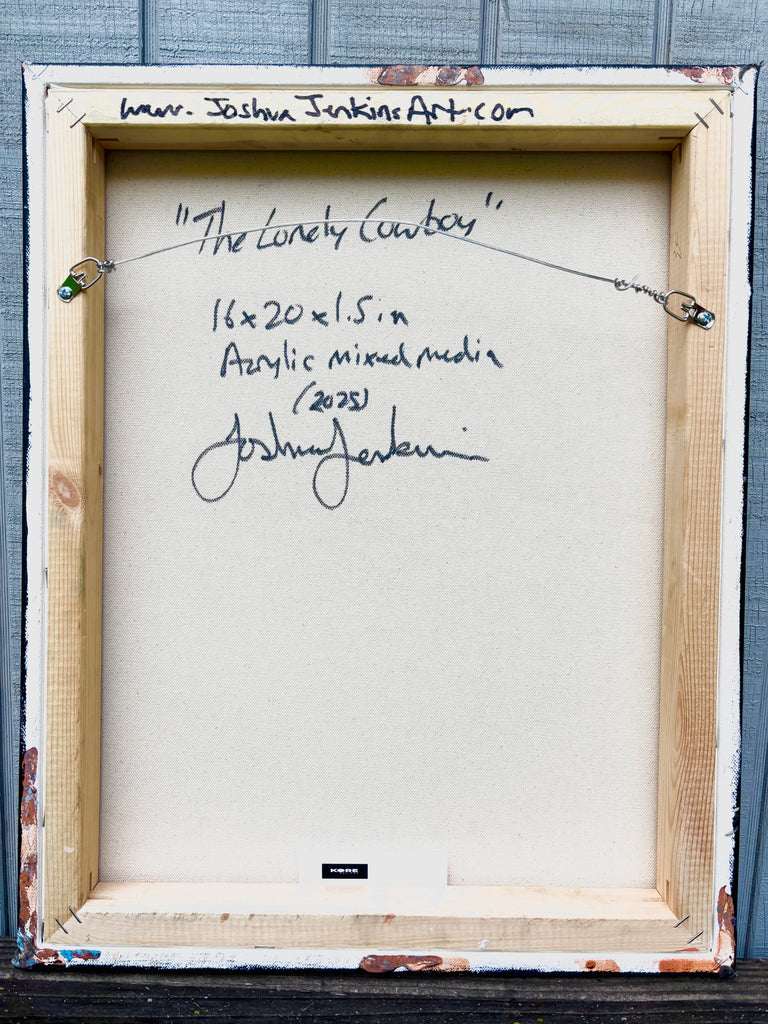 www.JoshuaJenkinsArt.com
"The Lonely Cowboy"
16x20x1.5in
Acrylic mixed media
(2025)
Joshua Jenkins
KORE